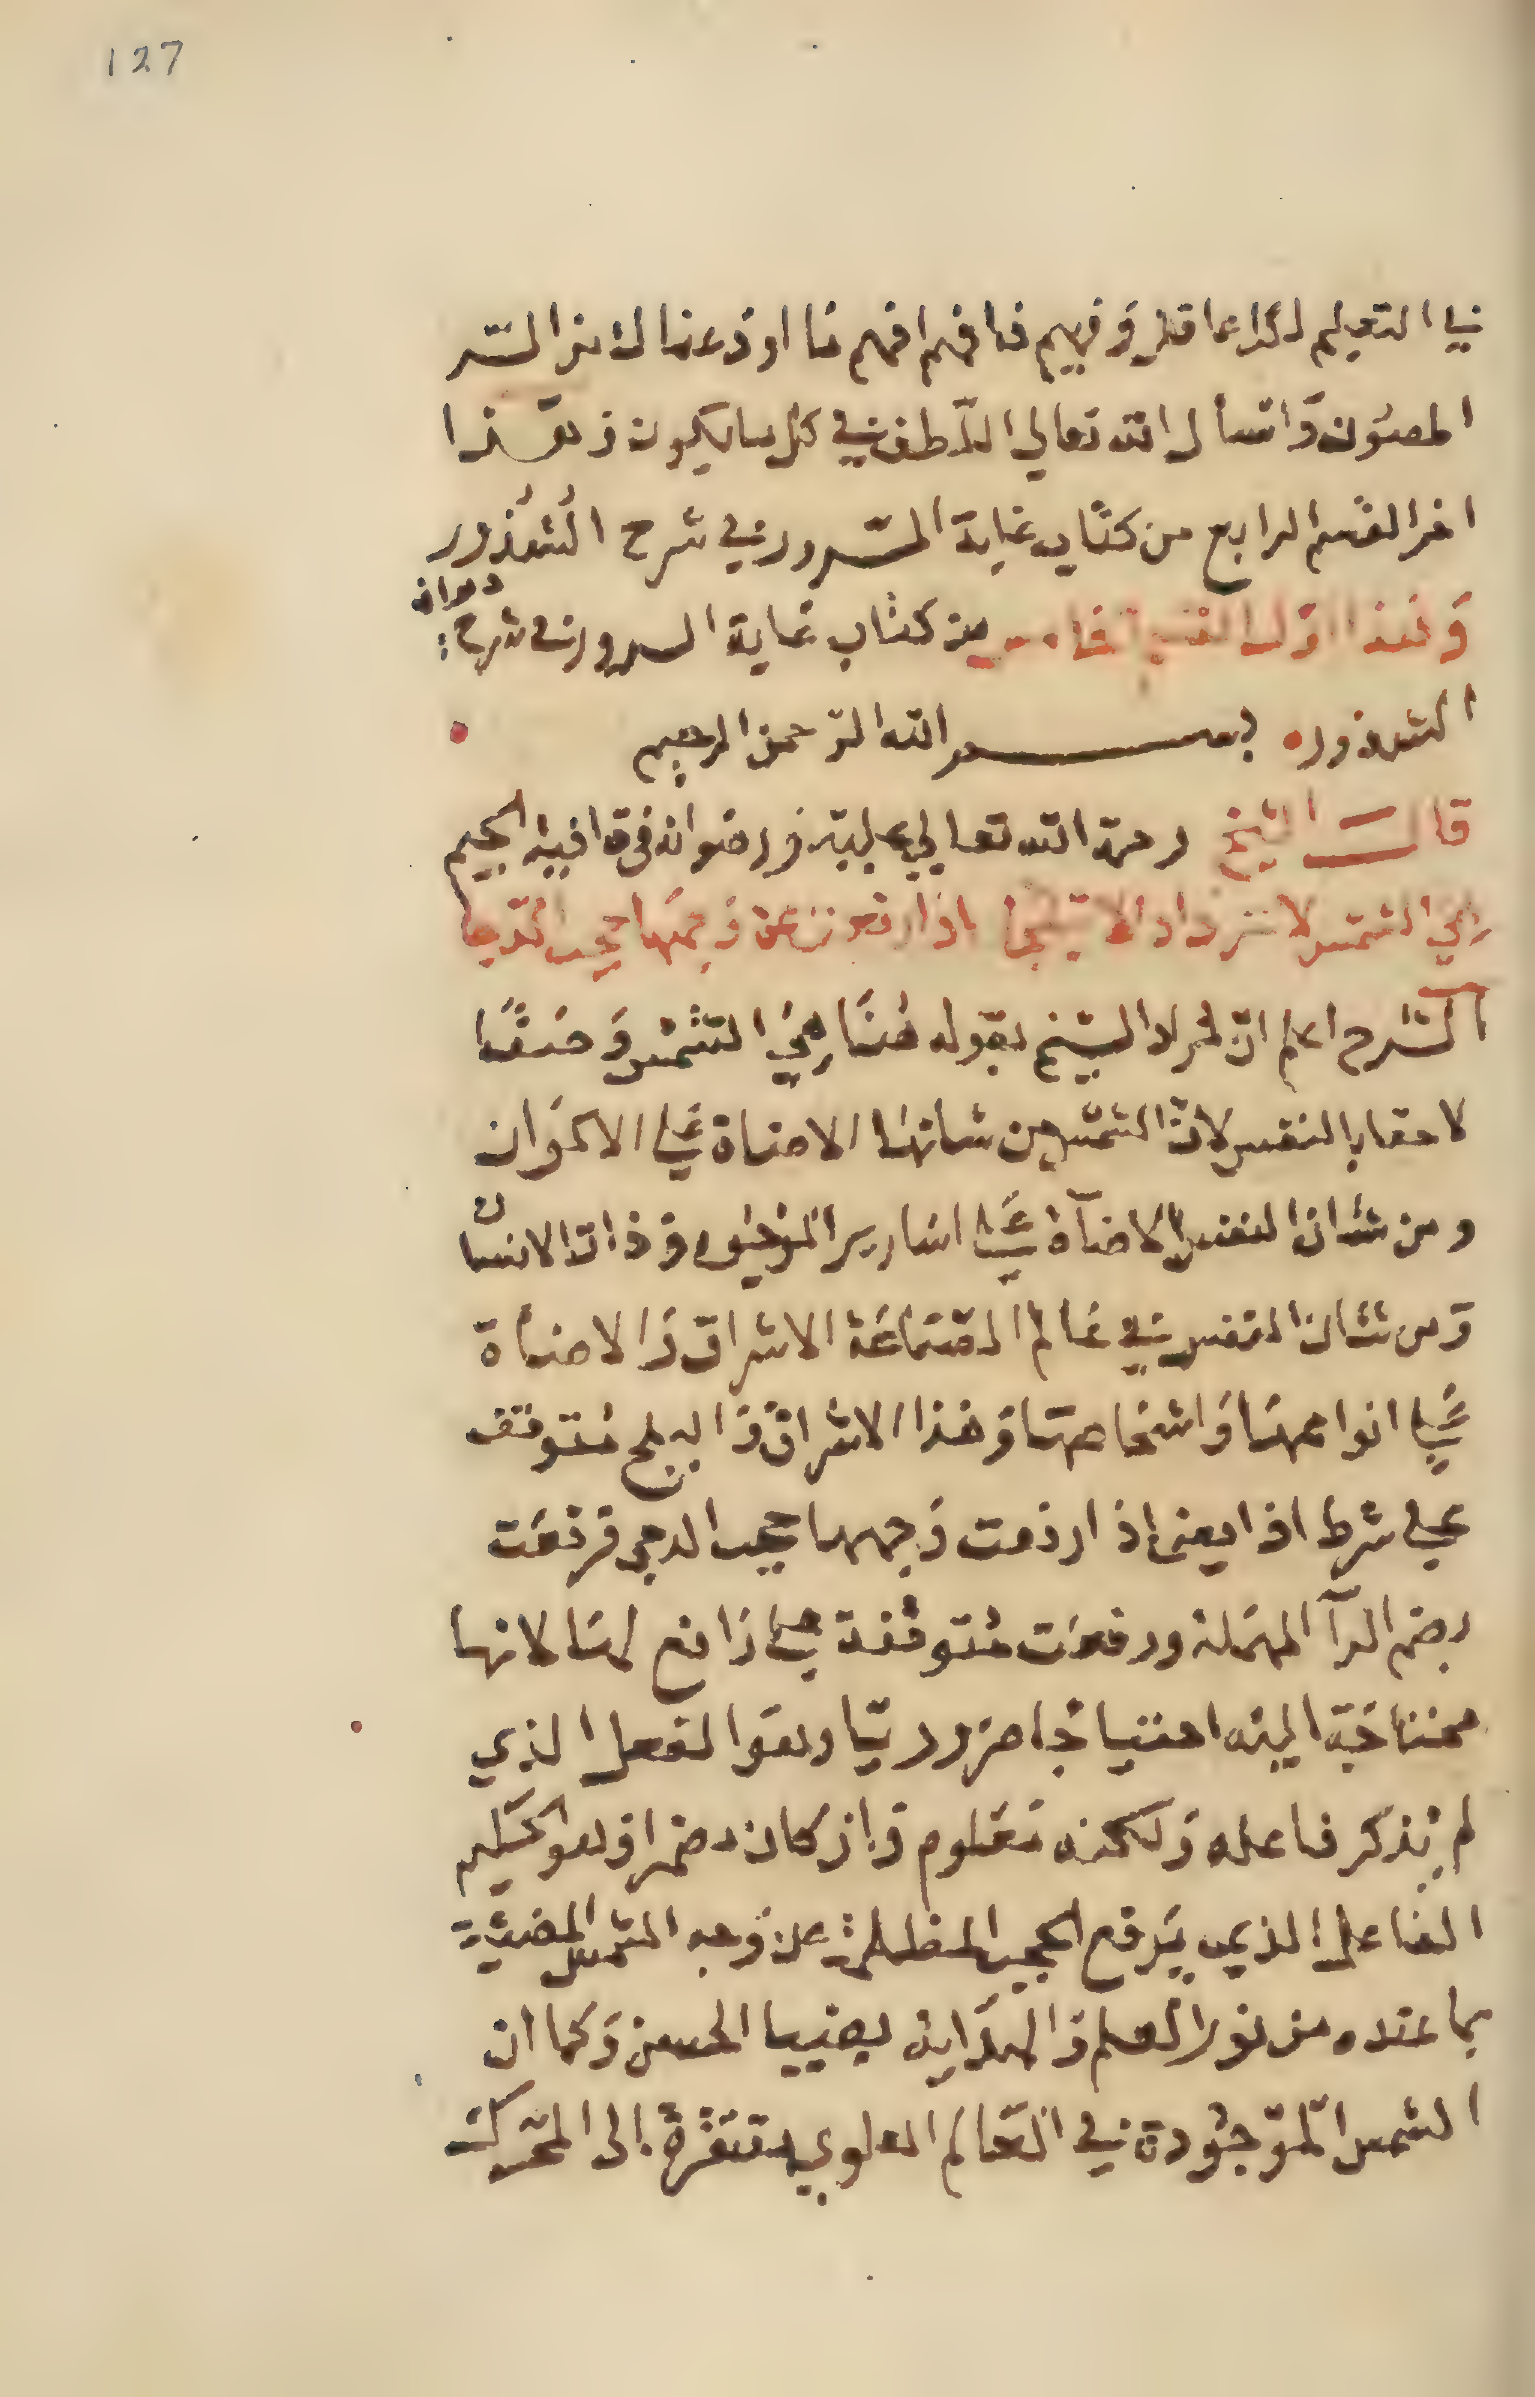 127
في التعليم لكل عاقل وفهيم فافهم افهم ما اودعناك من السر
المصون واتسأل الله تعالي اللطف في كل ما يكون وهذا
اخر القسم الرابع من كتاب غاية السرور في شرح الشذور
وهذا اول القسم الخامس من كتاب غاية السرور في شرح ديوان
الشذور بسم الله الرحمن الرحيم
قال الشيخ رحمة الله تعالي عليه ورضوانه في قافية الجيم
هي الشمس لا تزداد الا تبلجا اذا رفعت عن وجهها حجب الدجا
الشرح اعلم ان مراد الشيخ بقوله هنا هي الشمس وصفا
لاحقا بالنفس لان الشمس من شانها الاضاة علي الاكوان
ومن شان النفس الاضآة علي اسارير الوجوه وذات الانسان
ومن شان النفس في عالم الصناعة الاشراق والاضاة
علي انواعها واشخاصها وهذا الاشراق والبلج متوقف
علي شرط اذا يعني اذا رفعت وجهها حجب الدجي فرفعت
بضم الرآ المهملة ورفعت متوقفة علي رافع لها لانها
محتاجة اليه احتياجا ضروريا وهو الفعل الذي
لم يذكر فاعله ولكنه معلوم وان كان مضمرا وهو الحكيم
الفاعل الذي يرفع الحجب المظلمة عن وجه الشمس المضيئة
بما عنده من نور العلم والهداية بضييا الحسن وكما ان
الشمس الموجودة في العالم العلوي مفتقرة الى المحرك